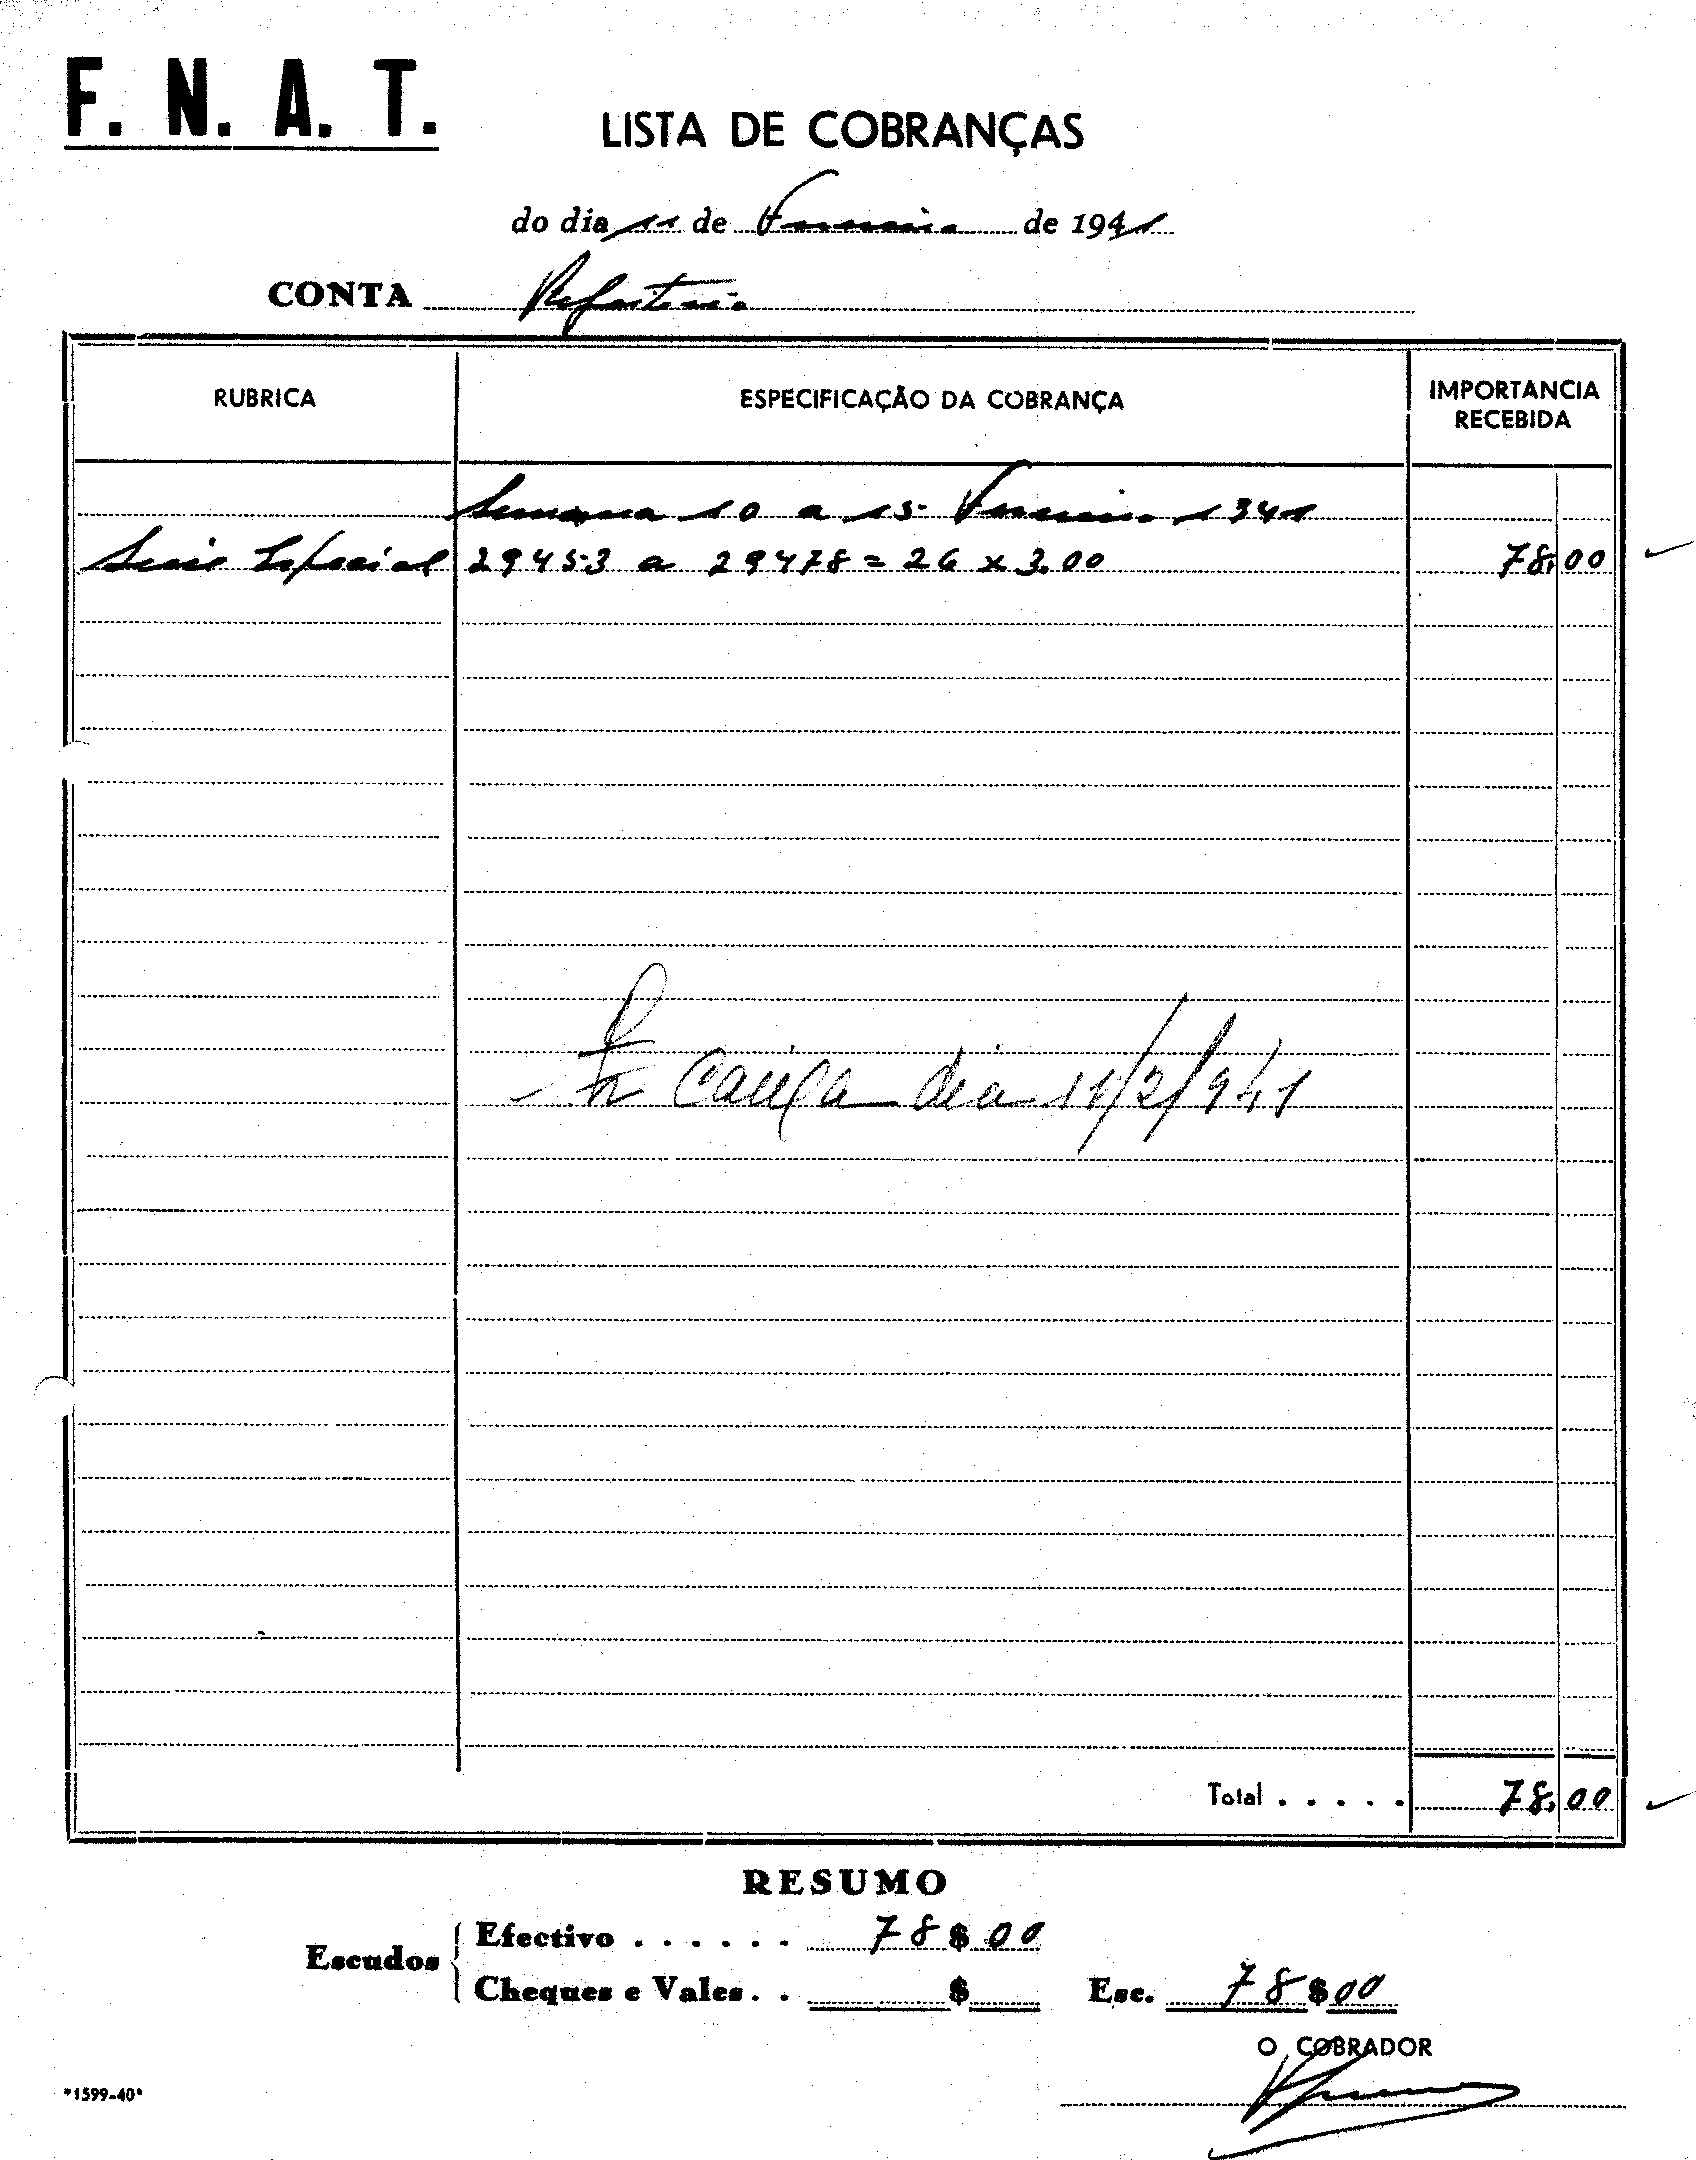 F. N. A. T.
LISTA DE COBRANÇAS
do dia 11 de Fevereiro de 1941
CONTA Refeitorio
RUBRICA ESPECIFICAÇÃO DA COBRANÇA IMPORTANCIA RECEBIDA
Semana 10 a 15 Fevereiro 1941
Serie Especial 29453 a 29478 = 26 x 3.00 78,00
Caixa dia 11/2/941
Total . . . . . 78,00
RESUMO
Escudos
Efectivo . . . . . . 78$00
Cheques e Vales. . $
Esc. 78$00
O COBRADOR
"1599-40"